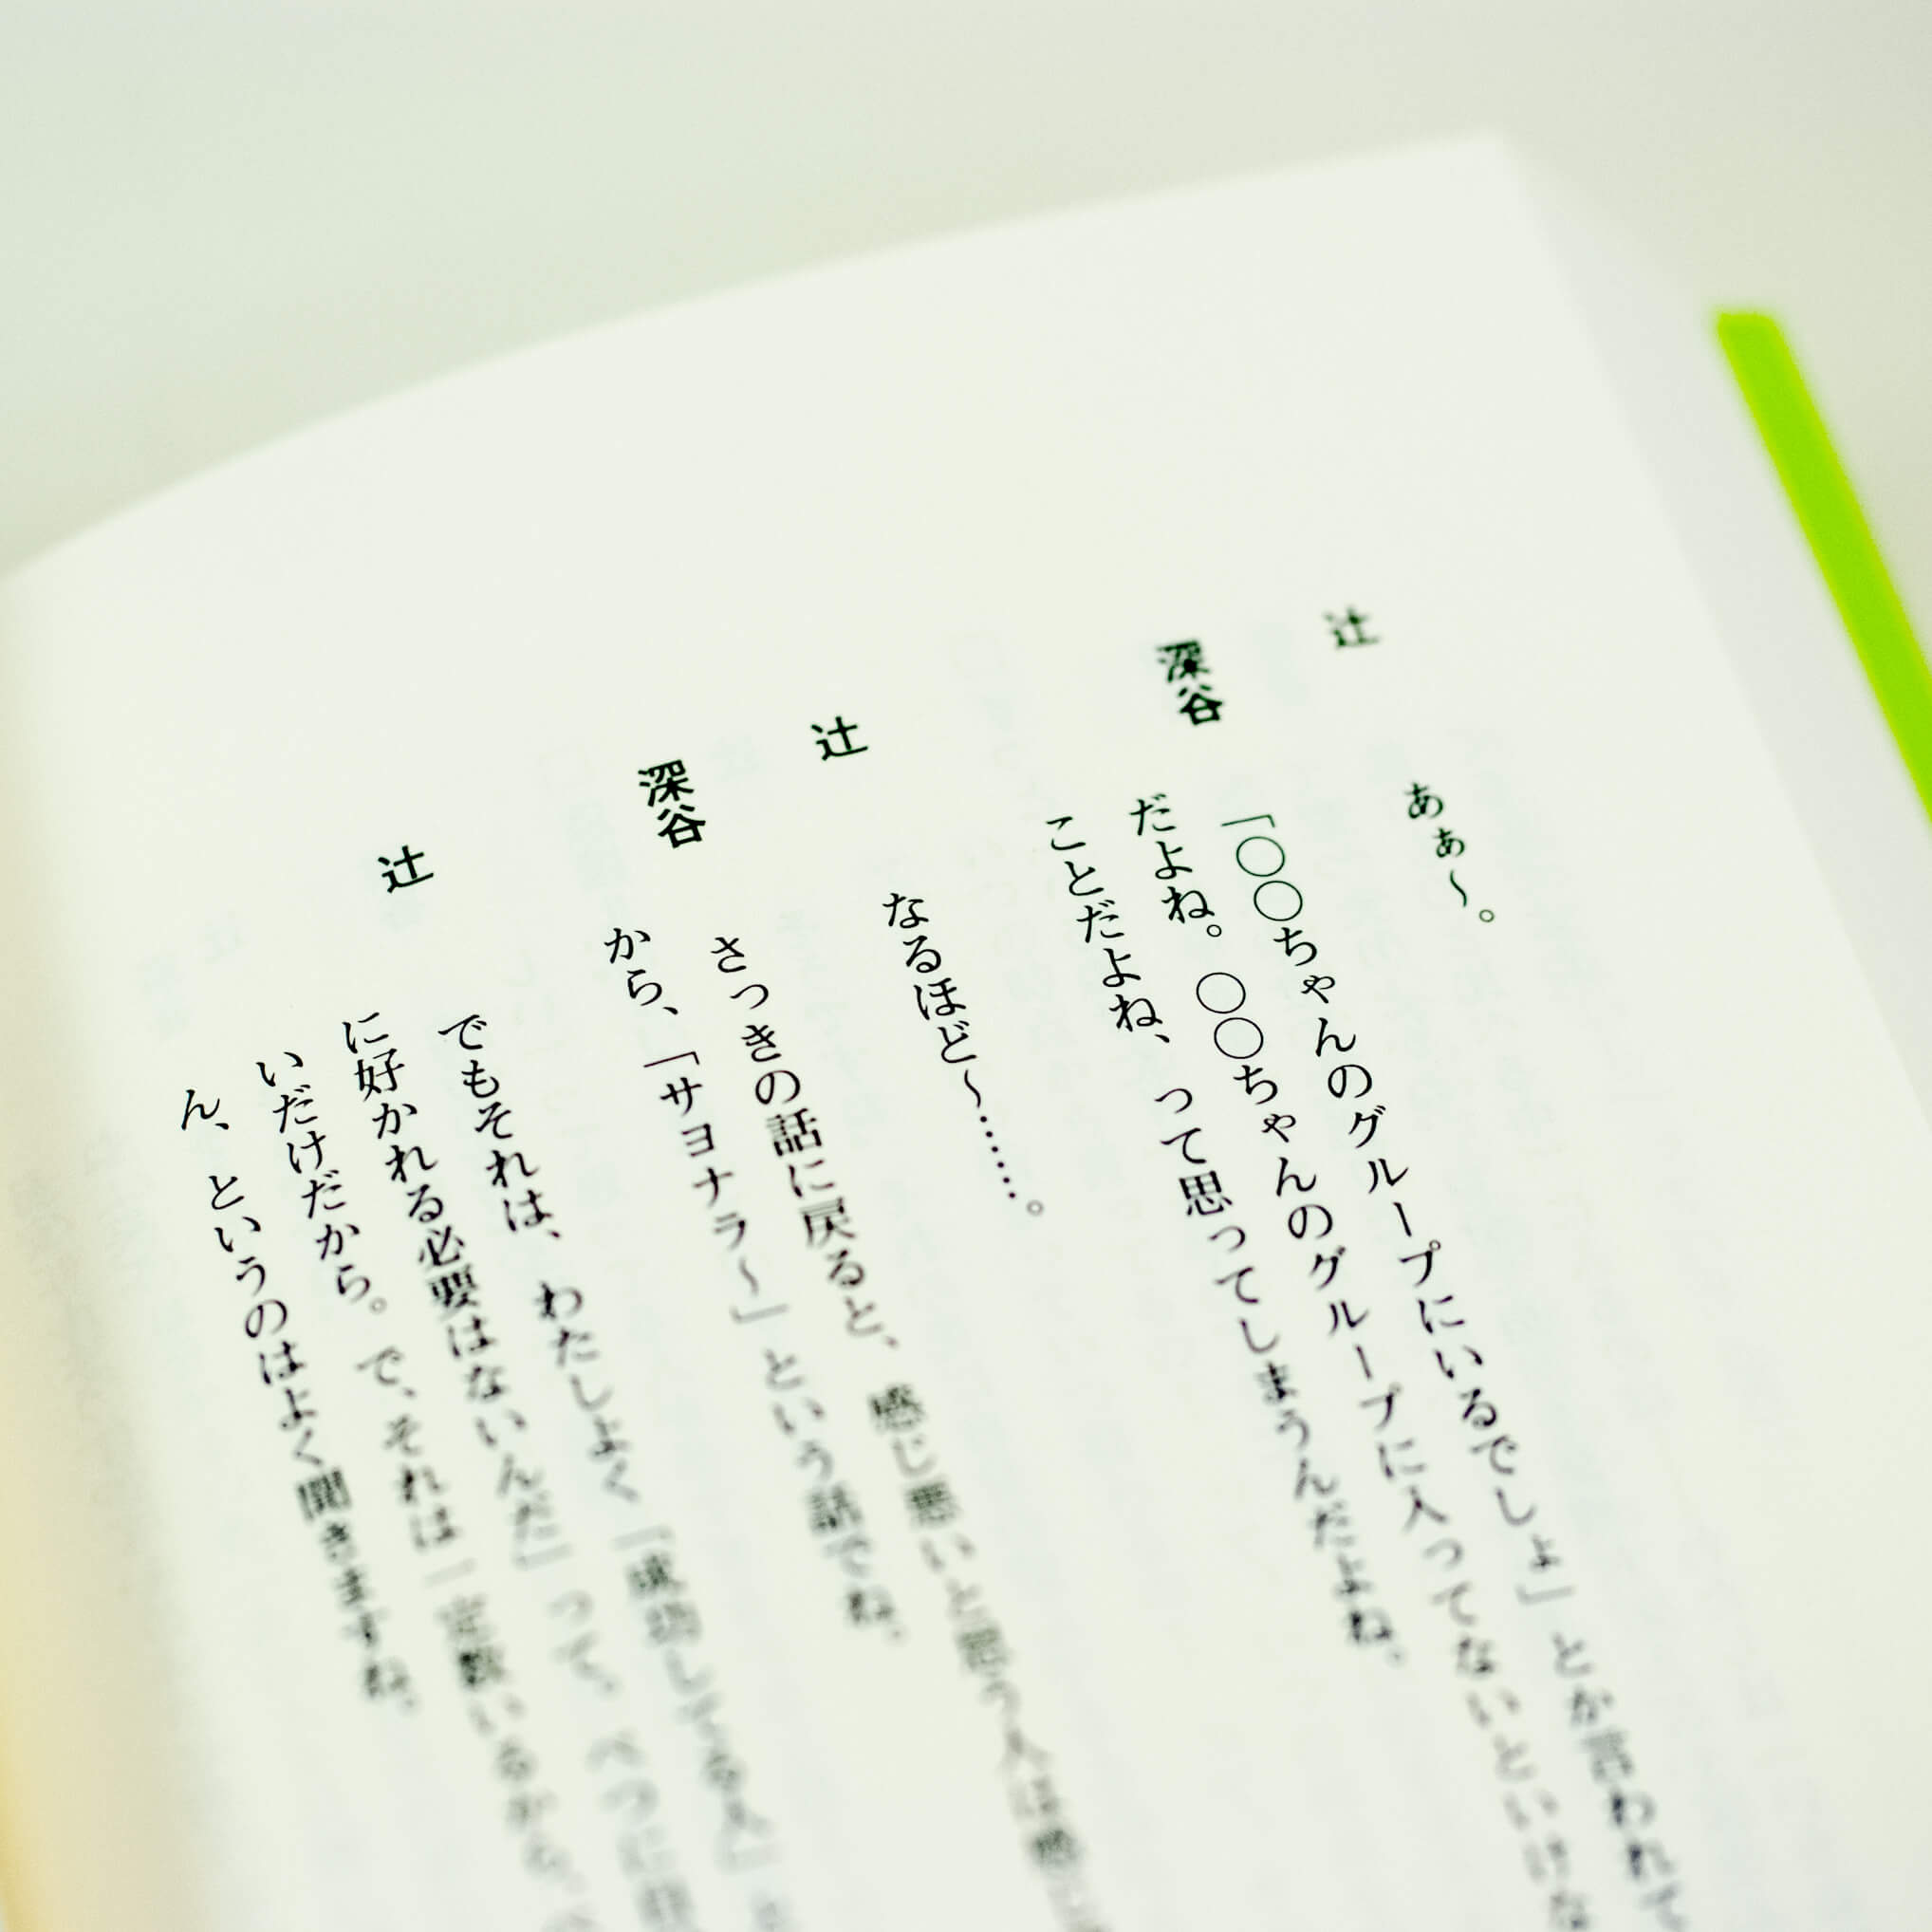 辻　ああ〜。
深谷　「〇〇ちゃんのグループにいるでしょ」とか言われて
だよね。〇〇ちゃんのグループに入ってないといけな
ことだよね、って思ってしまうんだよね。
辻　なるほど〜……。
深谷　さっきの話に戻ると、感じ悪いと思う人は
から、「サヨナラ〜」という話でね。
辻　でもそれは、わたしよく「成功してる人」
に好かれる必要はないんだ」って。べつに
いだけだから。で、それは一定数いるから、
ん、というのはよく聞きますね。